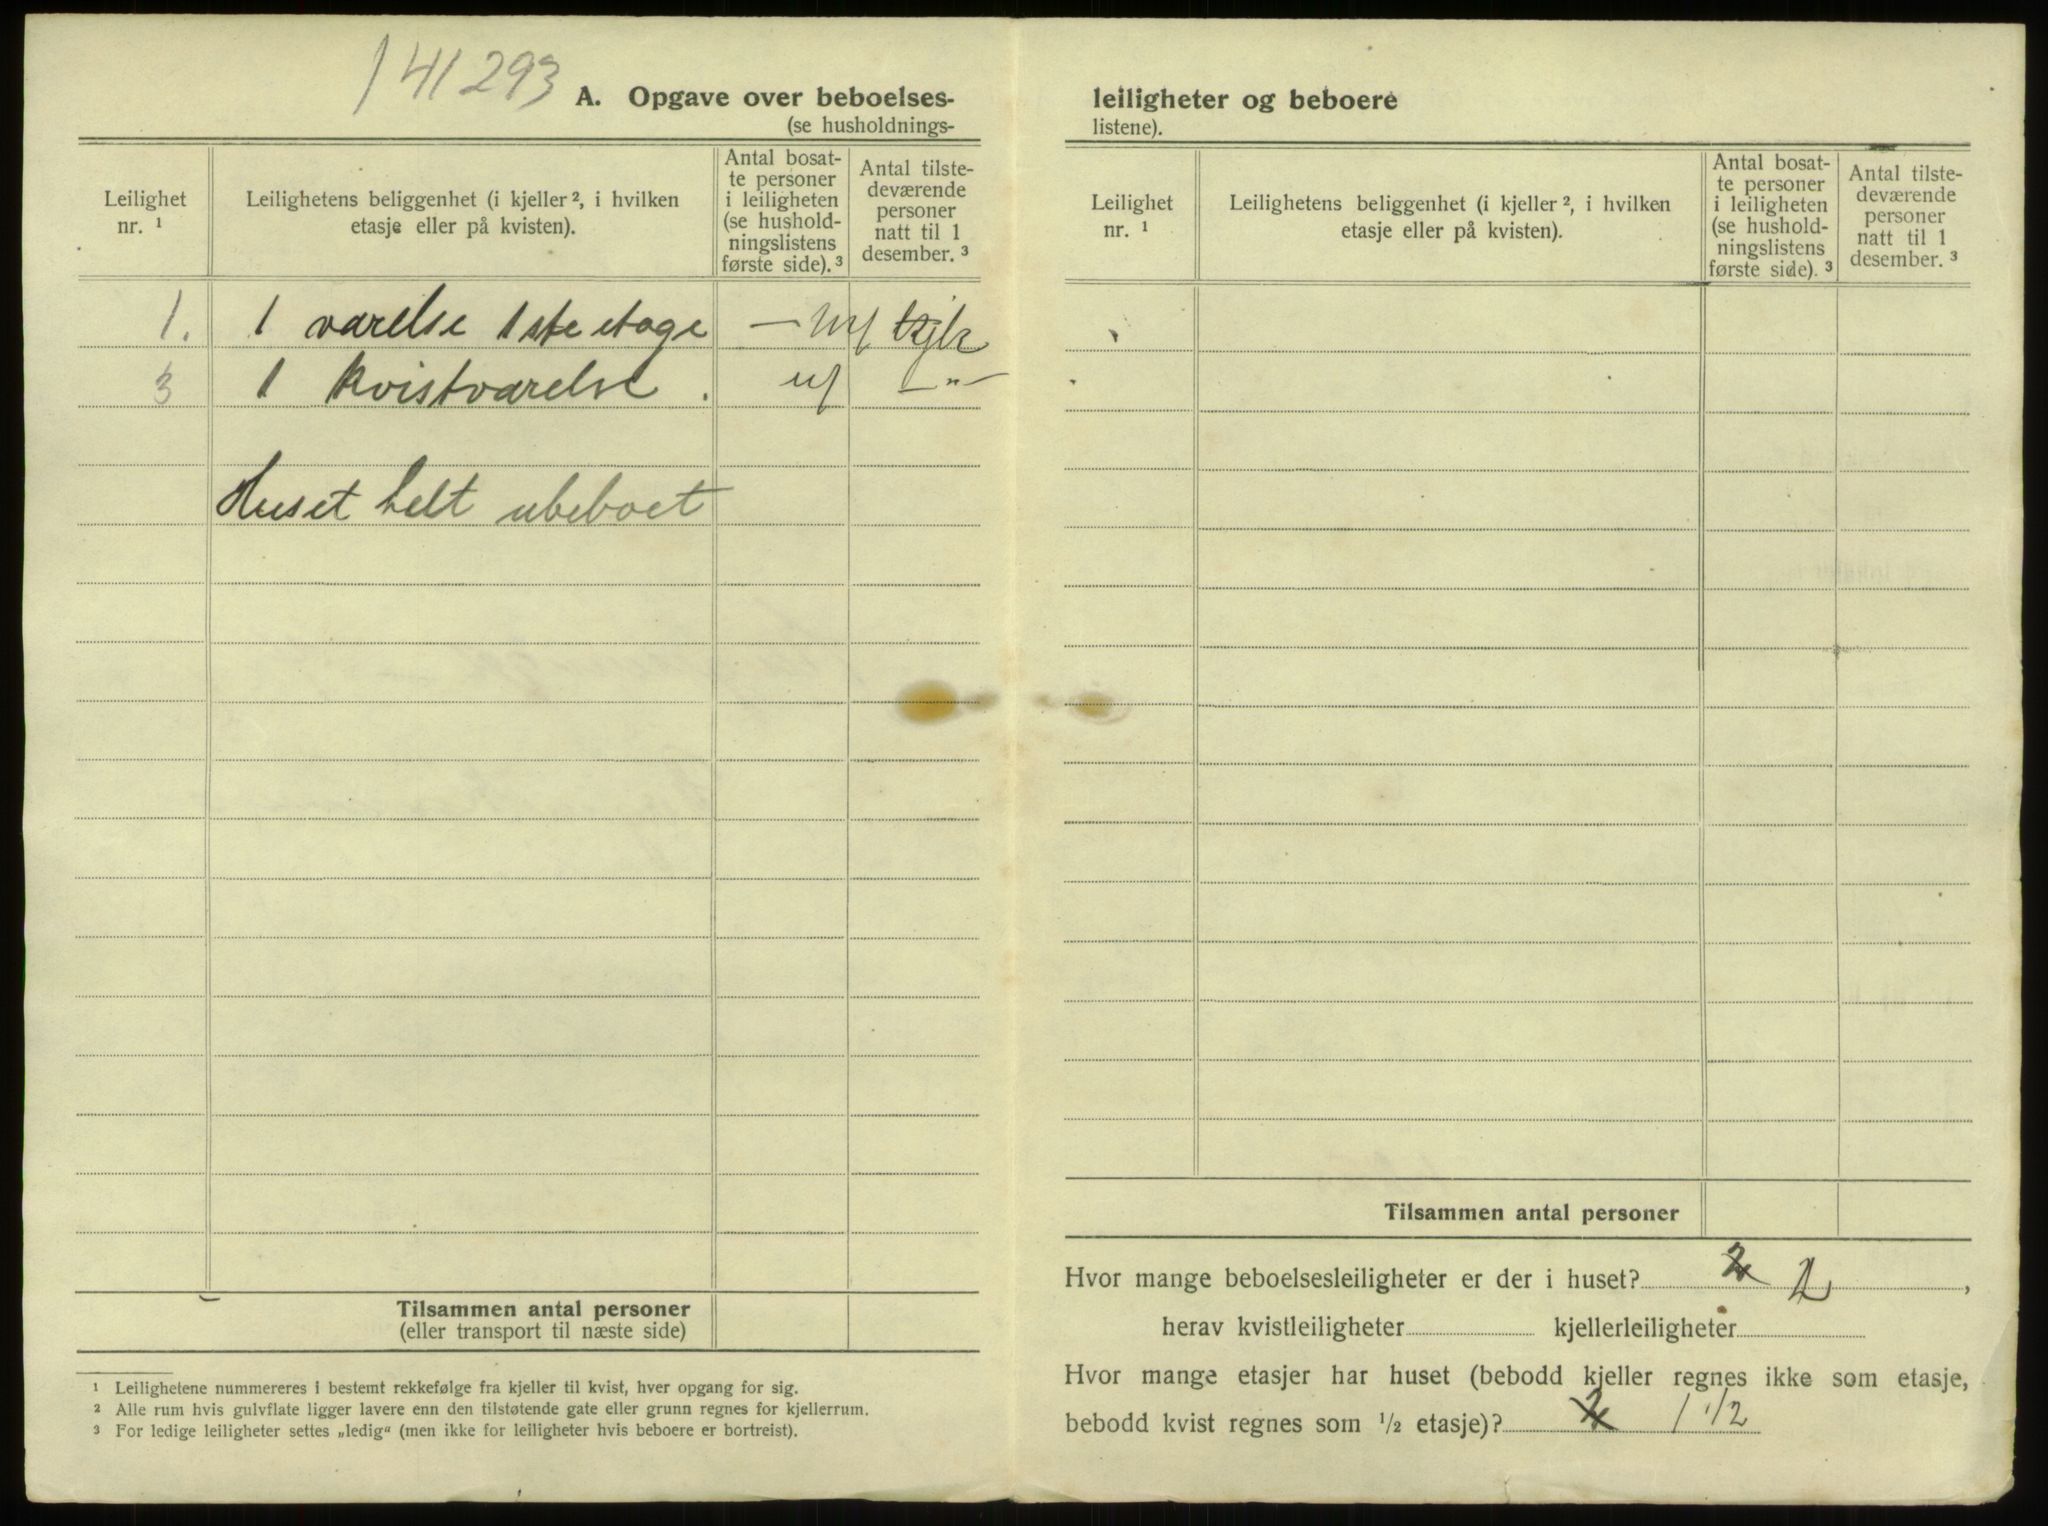 141293
A. Opgave over beboelses-
(se husholdnings-
Leilighet nr. ¹
Leilighetens beliggenhet (i kjeller ², i hvilken etasje eller på kvisten).
Antal bosat-
te personer
i leiligheten
(se hushold-
ningslistens
første side). ³
Antal tilste-
deværende
personer
natt til 1
desember. ³
1. 1 varelse 1ste etage —
3 1 kvistvarelse . — „ —
Huset helt ubeboet
Tilsammen antal personer
(eller transport til næste side)
¹ Leilighetene nummereres i bestemt rekkefølge fra kjeller til kvist, hver opgang for sig.
² Alle rum hvis gulvflate ligger lavere enn den tilstøtende gate eller grunn regnes for kjellerrum.
³ For ledige leiligheter settes „ledig“ (men ikke for leiligheter hvis beboere er bortreist).
leiligheter og beboere
listene).
Leilighet nr. ¹
Leilighetens beliggenhet (i kjeller ², i hvilken etasje eller på kvisten).
Antal bosat-
te personer
i leiligheten
(se hushold-
ningslistens
første side). ³
Antal tilste-
deværende
personer
natt til 1
desember. ³
Tilsammen antal personer
Hvor mange beboelsesleiligheter er der i huset? 2 2,
herav kvistleiligheter kjellerleiligheter
Hvor mange etasjer har huset (bebodd kjeller regnes ikke som etasje,
bebodd kvist regnes som ½ etasje)? 2 1 1/2